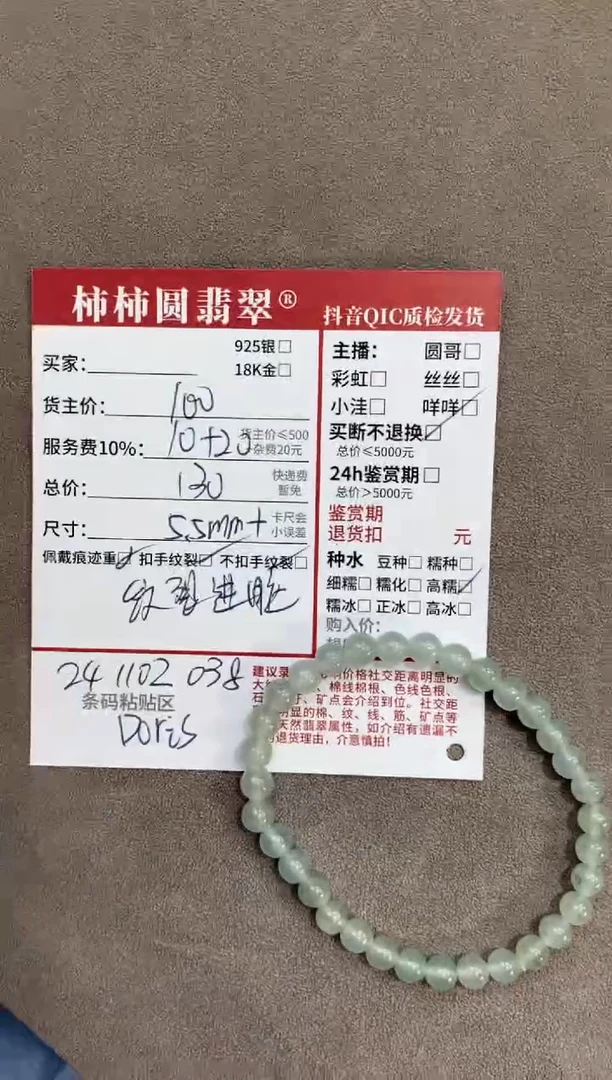 柿柿圆翡翠®
抖音QIC质检发货
925银□
买家:
18K金□
货主价: 100
服务费10%: 10+20
货主价≤500
杂费20元
总价: 130
快递费
暂免
尺寸: 5.5mm+
卡尺会
小误差
佩戴痕迹重□ 扣手纹裂□ 不扣手纹裂□
纹裂进脏
主播: 圆哥□
彩虹□ 丝丝□
小洼□ 咩咩□
买断不退换□
总价≤5000元
24h鉴赏期□
总价>5000元
鉴赏期
退货扣 元
种水 豆种□ 糯种□
细糯□ 糯化□ 高糯□
糯冰□ 正冰□ 高冰□
购入价:
241102 038
条码粘贴区
Doris
建议录
价格社交距离明显的
棉线棉根、色线色根、
矿点会介绍到位。社交距
明显的棉、纹、线、筋、矿点等
天然翡翠属性，如介绍有遗漏不
退货理由，介意慎拍！